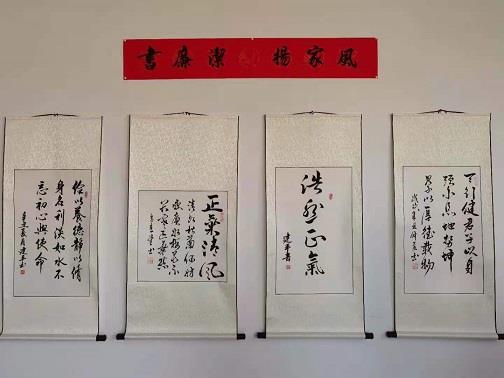 書廉潔揚家風
儉以養德靜以修
身名利淡如水不
忘初心與使命
正氣清風
浩然正氣
建平書
天行健君子以自
强不息地势坤
君子以厚德載物